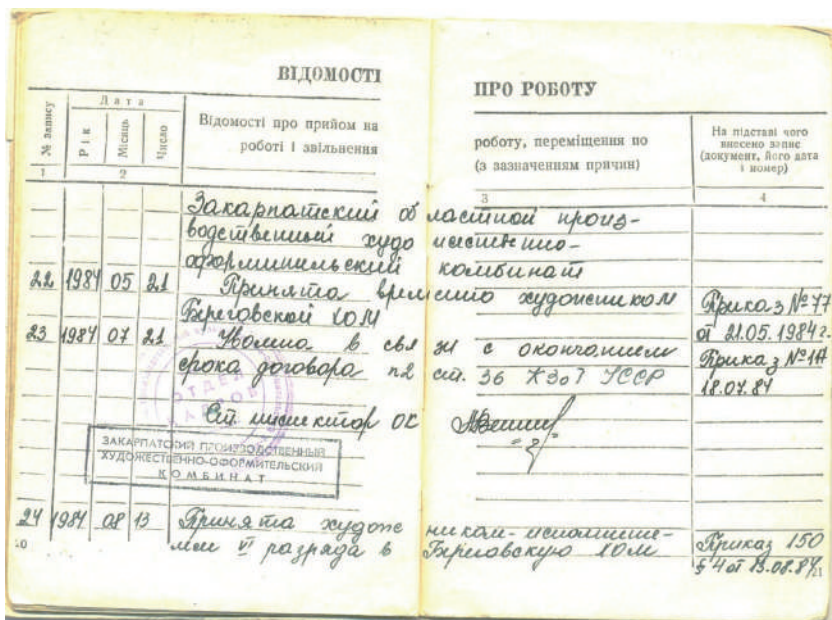 ВІДОМОСТІ ПРО РОБОТУ
№ запису
Дата
Рік
Місяць
Число
Відомості про прийом на роботу, переміщення по
роботі і звільнення (з зазначенням причин)
На підставі чого
внесено запис
(документ, його дата
і номер)
1 2 3 4
Закарпатский областной произ-
водственный художественно-
оформительский комбинат
22 1984 05 21 Принята временно художником Приказ № 77
Береговской ХОМ от 21.05.1984 г.
23 1984 07 21 Уволена в связи с окончанием Приказ №
срока договора п2 ст. 36 КЗоТ УССР 18.07.84
ОТДЕЛ
КАДРОВ
Ст. инспектор ОК
ЗАКАРПАТСКИЙ ПРОИЗВОДСТВЕННЫЙ
ХУДОЖЕСТВЕННО-ОФОРМИТЕЛЬСКИЙ
КОМБИНАТ
24 1984 08 13 Принята художником-исполните- Приказ 150
лем VI разряда в Береговскую ХОМ § 4 от 13.08.84
20 21